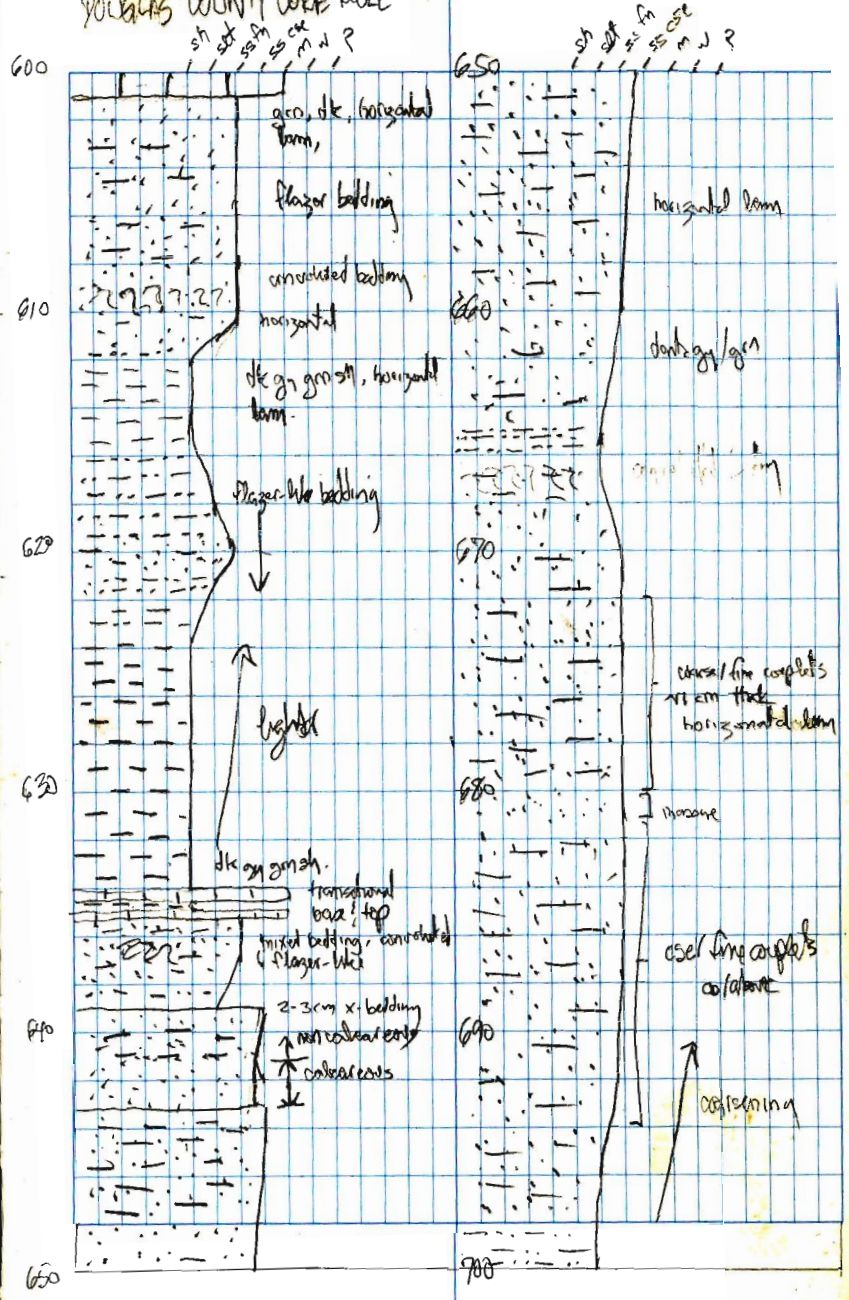 DOUGLAS COUNTY CORE HOLE
sh slt ss fn ss cse m w P
600
grn, dk, horizontal
lam,
flazer bedding
convoluted bedding
610
horizontal
dk gy grn sh, horizontal
lam.
flazer-like bedding
620
lights
630
dk gy grn sh.
transitional
base & top
mixed bedding, convoluted
& flazer-like
2-3cm x-bedding
640
non calcareous
calcareous
650
sh slt ss fn ss cse m w P
650
horizontal lam
660
dark gy/grn
670
coarse/fine couplets
cm thick
horizontal lam
680
massive
cse/fine couplets
as/above
690
coarsening
700